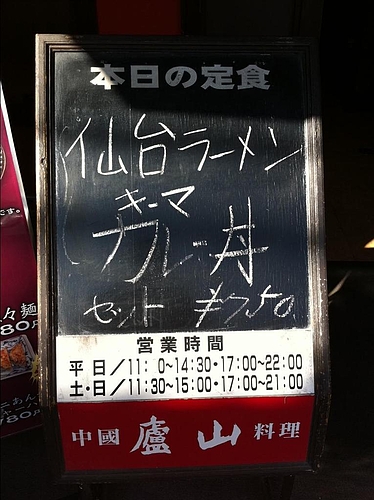 本日の定食
仙台ラーメン
キーマ
ナス・丼
セット ¥750
営業時間
平 日／11: 0~14:30・17:00~22:00
土・日／11:30~15:00・17:00~21:00
中國 廬山 料理
です。
々麺
80円